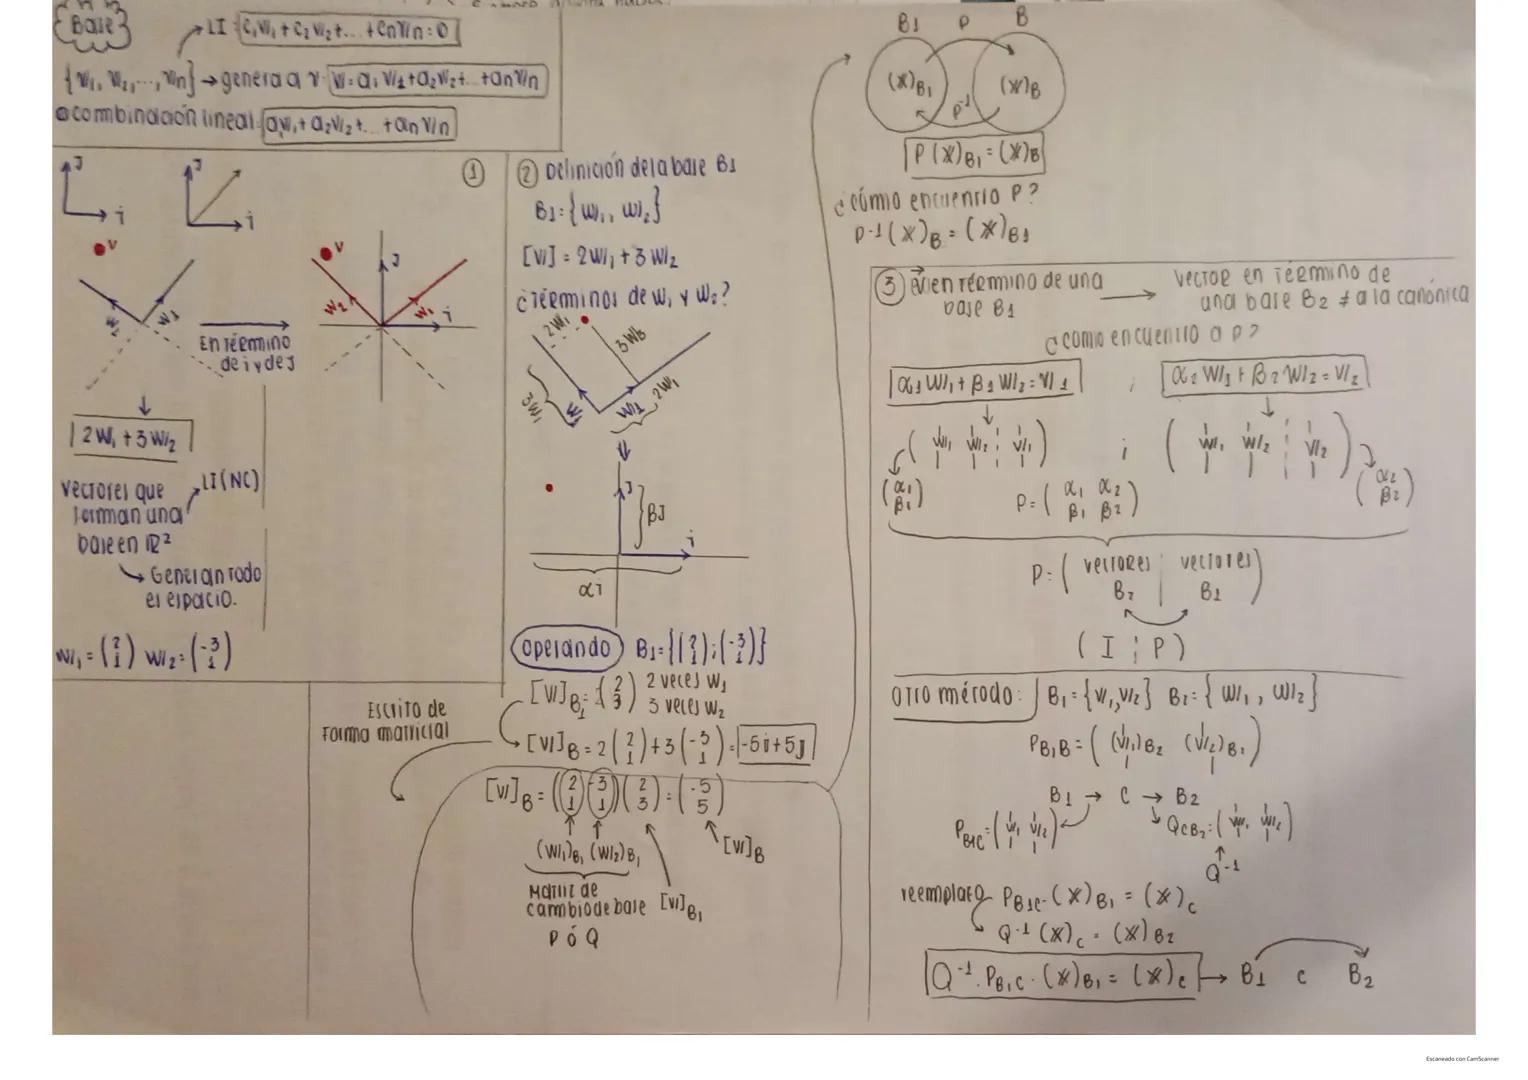 Base
LI C₁W₁ + C₂W₂ + ... + CnVn = 0
{V₁, V₂, ..., Vn} → genera a V W = a₁V₁ + a₂V₂ + ... + anVn
combinación lineal: a₁V₁ + a₂V₂ + ... + anVn
①
J
i
J
i
V
W₂
W₁
En término
de i y de J
V
J
W₂
W₁
i
2W₁ + 3W₂
Vectores que
forman una
base en ℝ²
LI (NC)
→ Generan todo
el espacio.
W₁ = (2 1) W₂ = (-3 1)
② Definición de la base B1
B1 = {W₁, W₂}
[V] = 2W₁ + 3W₂
¿Términos de W₁ y W₂?
2W₁
3W₂
2W₁
W₁
J
βJ
i
αi
Operando B1 = {(2 1); (-3 1)}
[V]B₁ = (2 3) 2 veces W₁
3 veces W₂
[V]B = 2(2 1) + 3(-3 1) = -5i + 5J
Escrito de
forma matricial
[V]B = ((2 1)(-3 1))(2 3) = (-5 5)
(W₁)B₁ (W₂)B₁
[V]B
Matriz de
cambio de base [V]B₁
P ó Q
B1 P B
(X)B₁ (X)B
P⁻¹
P(X)B₁ = (X)B
¿cómo encuentro P?
P⁻¹(X)B = (X)B1
③ V en término de una
base B1
→ Vector en término de
una base B2 ≠ a la canónica
¿como encuentro a P?
α₁W₁ + β₁W₂ = V₁ ; α₂W₁ + β₂W₂ = V₂
(W₁ W₂ ¦ V₁) ; (W₁ W₂ ¦ V₂)
(α₁ β₁) P = (α₁ α₂ β₁ β₂) (α₂ β₂)
P = (vectores B2 | vectores B1)
(I ¦ P)
Otro método: B₁ = {V₁, V₂} B₂ = {W₁, W₂}
PB₁B = ((V₁)B₂ (V₂)B₂)
B1 → C → B2
PB1C = (V₁ V₂) QCB₂ = (W₁ W₂)
Q⁻¹
reemplazo PB1C · (X)B₁ = (X)C
Q⁻¹(X)C = (X)B2
Q⁻¹ · PB₁C · (X)B₁ = (X)C → B1 C B2
Escaneado con CamScanner